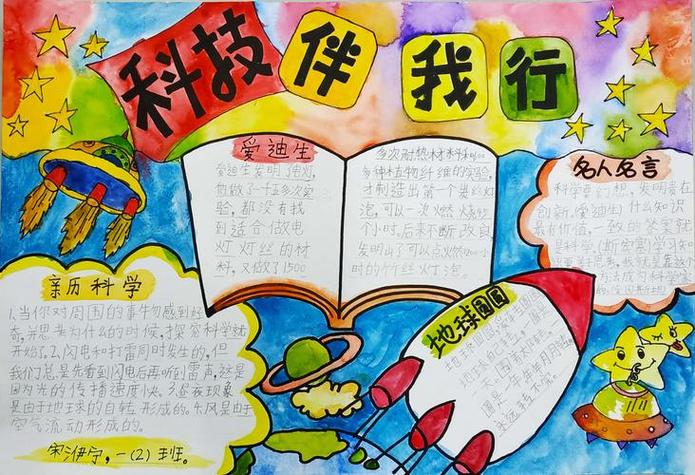 科技伴我行
爱迪生
爱迪生发明了电灯,
他做了一千五多次实
验,都没有找
到适合做电
灯灯丝的材
料,又做了1500
多次耐热材料和600
多种植物纤维的实验,
才制造出第一个炭丝灯
泡,可以一次燃烧
个小时,后来不断改良
发明出了可以点燃1200小
时的竹丝灯泡。
名人名言
科学要幻想,发明需在
创新,爱迪生)什么知识
最有价值,一致的答案就
是科学,(斯宾塞)学习知
亲历科学
1.当你对周围的事牛勿感到好
奇,并思考为什么的时候,探究科学就
开始了。2.闪电和打雷同时发生的,但
我们总是先看到闪电后再听到雷声,这是
因为光的传播速度快。3.昼夜现象
是由于地球的自转形成的。4.风是由于
空气流动形成的。
宋洢宁,一(2)班。
地球圆圆